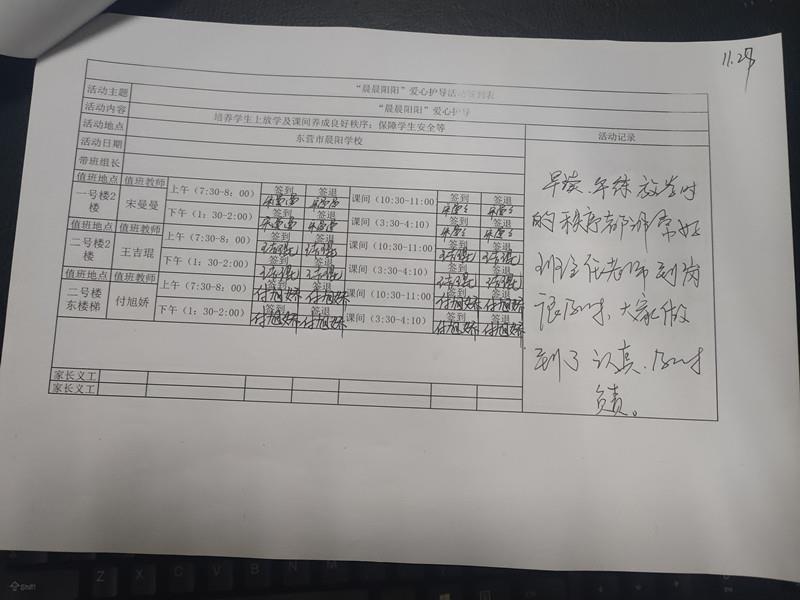 11.27
"晨晨阳阳"爱心护导活动签到表
活动主题 "晨晨阳阳"爱心护导
活动内容 培养学生上放学及课间养成良好秩序;保障学生安全等
活动地点 东营市晨阳学校
活动日期
带班组长
活动记录
值班地点 值班教师 上午(7:30-8:00) 签到 签退 课间(10:30-11:00 签到 签退
一号楼2楼 宋曼曼 下午(1:30-2:00) 签到 签退 课间(3:30-4:10) 签到 签退
值班地点 值班教师 上午(7:30-8:00) 签到 签退 课间(10:30-11:00 签到 签退
二号楼2楼 王吉琨 下午(1:30-2:00) 签到 签退 课间(3:30-4:10) 签到 签退
王吉琨 王吉琨 王吉琨 王吉琨
值班地点 值班教师 上午(7:30-8:00) 签到 签退 课间(10:30-11:00 签到 签退
付旭娇 付旭娇 付旭娇 付旭娇
二号楼东楼梯 付旭娇 下午(1:30-2:00) 签到 签退 课间(3:30-4:10) 签到 签退
付旭娇 付旭娇 付旭娇 付旭娇
家长义工
家长义工
早读、午练、放学时
的秩序都非常好
班主任老师到岗
很及时,大家做
到了认真、及时
负责。
Shift
Z X C V B N M